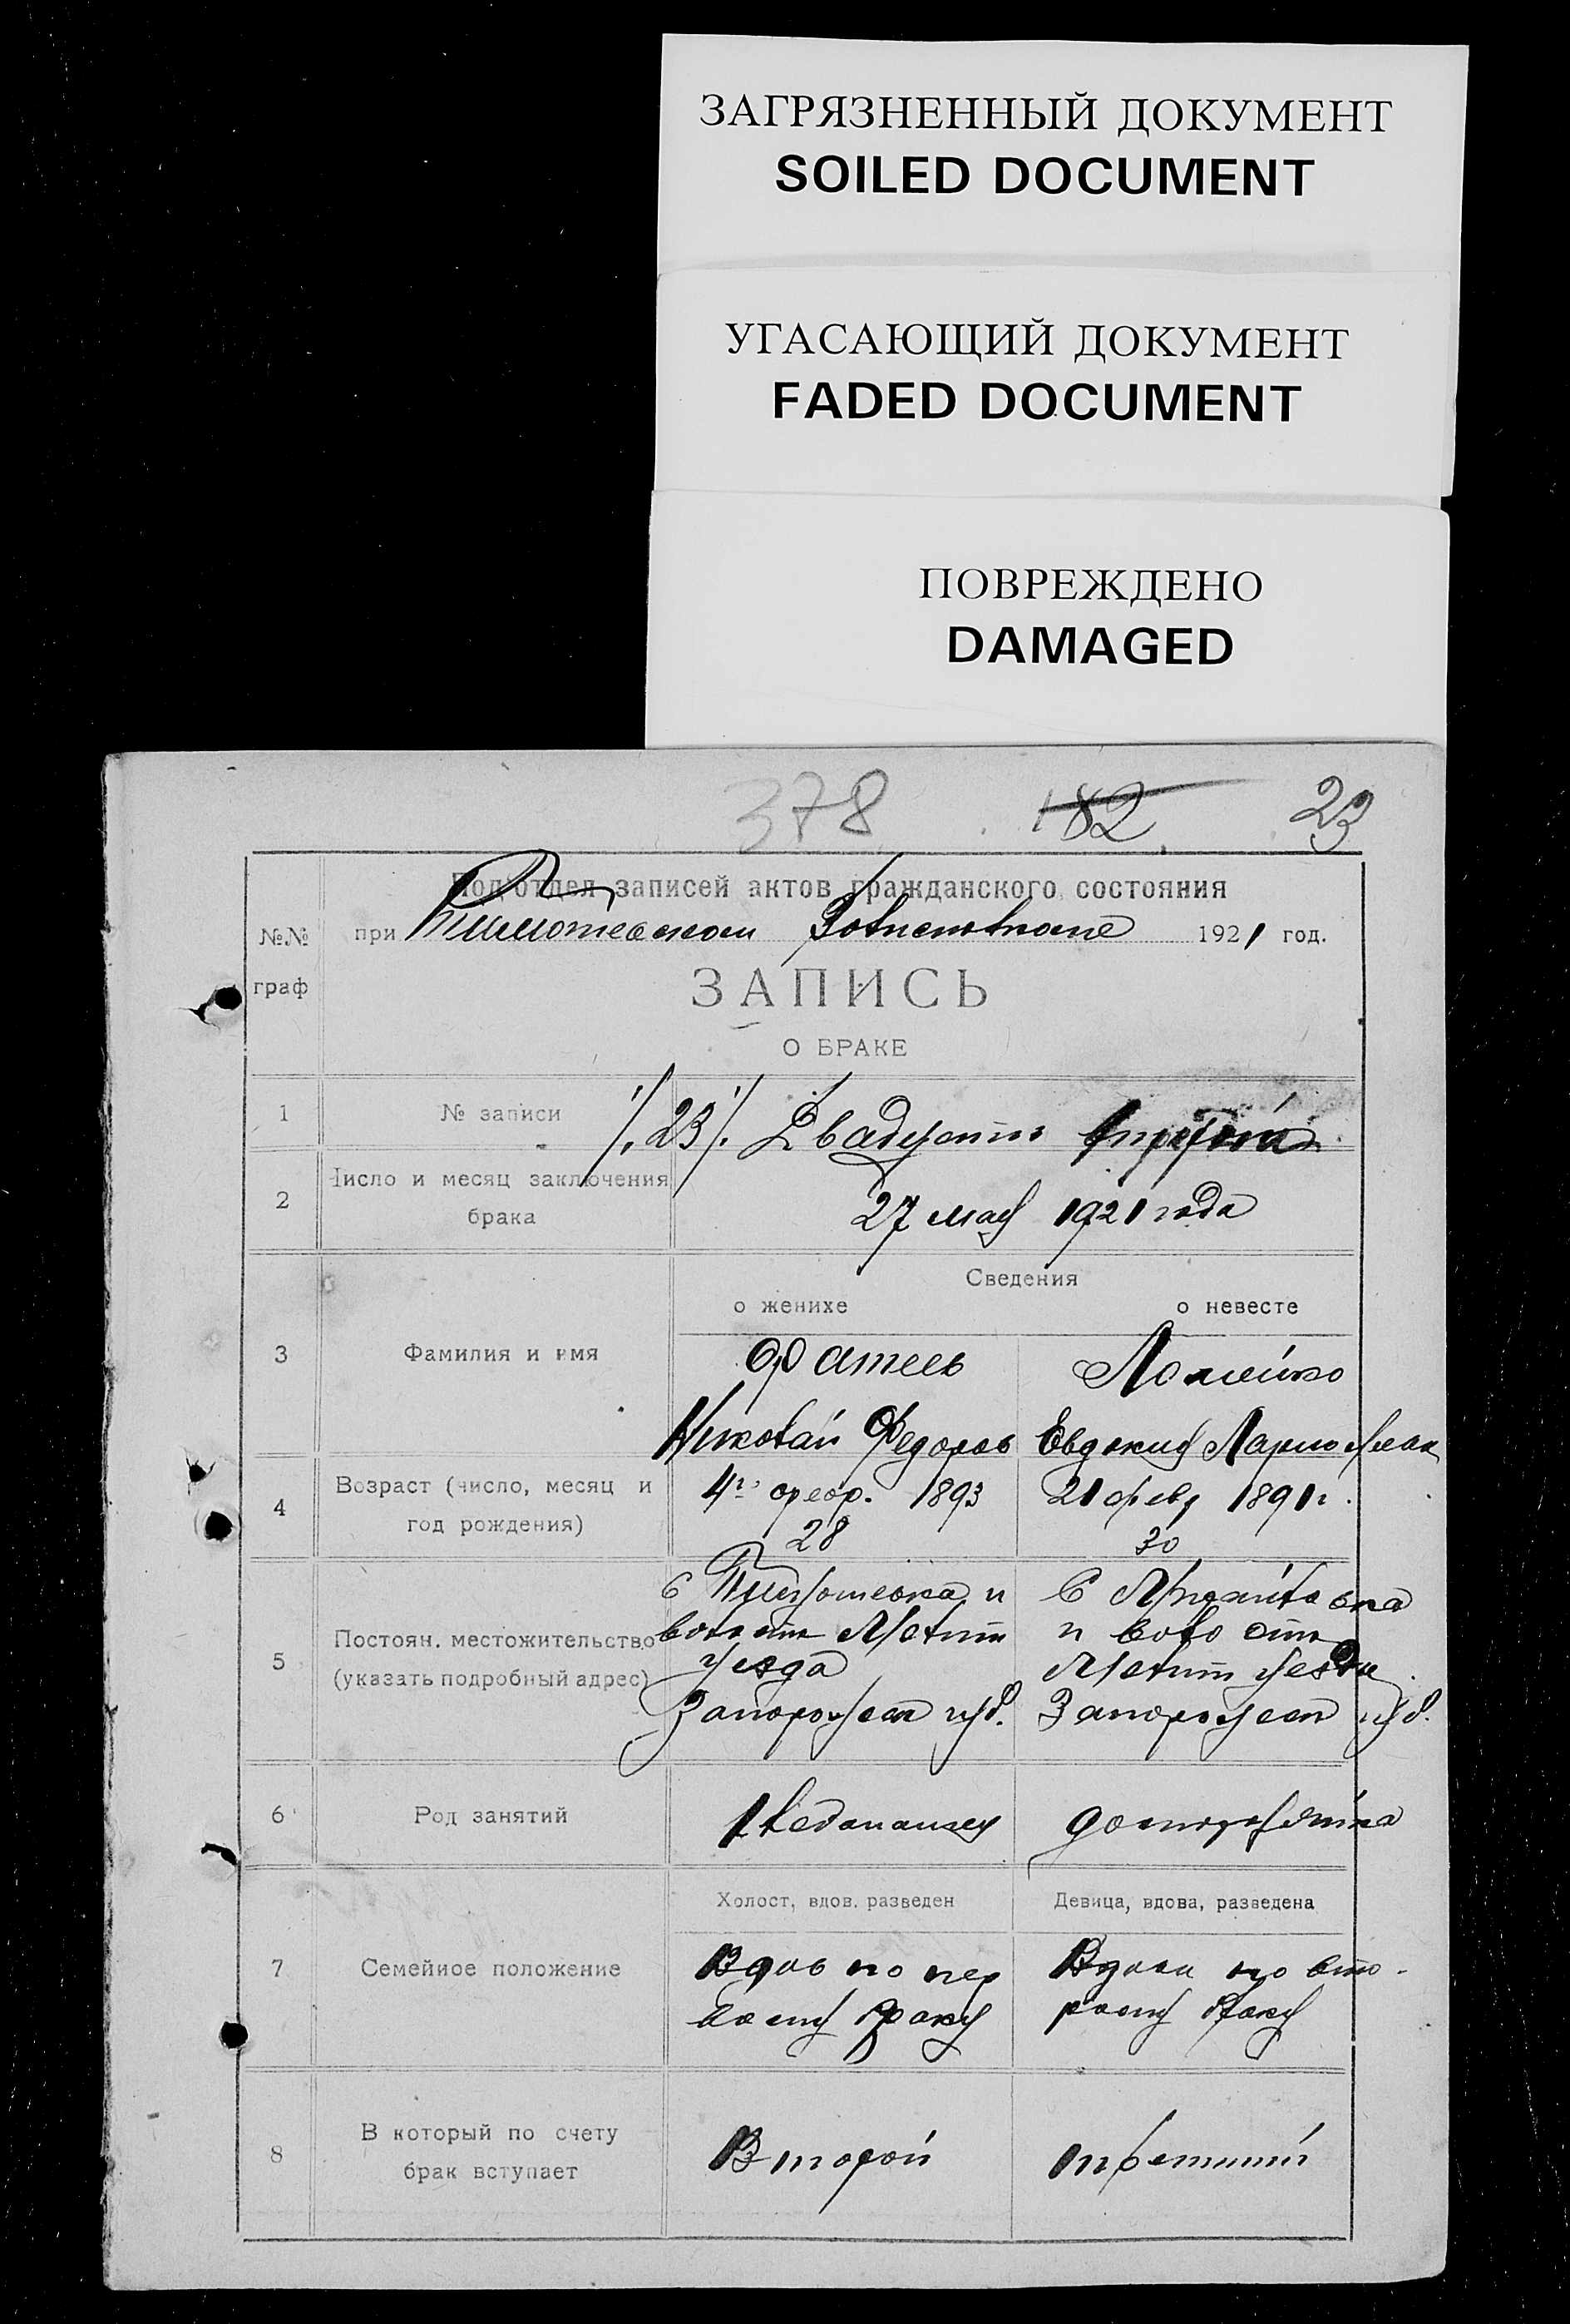 ЗАГРЯЗНЕННЫЙ ДОКУМЕНТ
SOILED DOCUMENT
УГАСАЮЩИЙ ДОКУМЕНТ
FADED DOCUMENT
ПОВРЕЖДЕНО
DAMAGED
378 182 23
Подотдел записей актов гражданского состояния
№№ граф
при 1921 год.
ЗАПИСЬ
О БРАКЕ
1 № записи /23/. Двадцать
2 Число и месяц заключения брака 27 мая 1921 года
Сведения
о женихе о невесте
3 Фамилия и имя Фатеев
Николай Федоров Евдокия
4 Возраст (число, месяц и год рождения) 4го февр. 1893 21 февр 1891 г.
28 30
5 Постоян. местожительство (указать подробный адрес)
С Тимошевка и С
волости Мелит и вол
уезда Мелит уезда
Запорожск губ. Запорожск губ.
6 Род занятий
7 Семейное положение
Холост, вдов. разведен Девица, вдова, разведена
Вдов по пер Вдова по вто-
вому браку рому браку
8 В который по счету брак вступает Второй третий